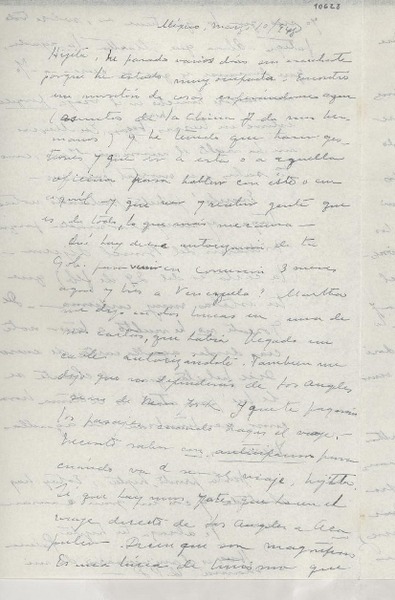 10628
México. mayo 10/948
Hijita, he pasado varios días sin escribirte
porque he estado muy ocupada. Encontré
un montón de cosas esperándome aquí
(asuntos de la clínica y de mis her-
manos) y he tenido que hacer ges-
tiones y que ir a esta o a aquella
oficina para hablar con éste o con
aquél y que ver y recibir gente que
es de todo, lo que más
Qué hay de esa autorización de tu
Gob. para venir en comisión 3 meses
aquí y tres a Venezuela? Martha
me dijo en dos líneas en una de
sus cartas, que había llegado un
cable autorizándote. También me
dijo que dependerías de Los Angeles
y no de New York. Y que te pagarían
los pasajes cuando hagas el viaje.-
Necesito saber con anticipación para
cuándo va a ser el viaje, hijita.
Sé que hay unos yates que hacen el
viaje directo de Los Angeles a Aca-
pulco. Dicen que son magníficos
Es una línea de turismo que